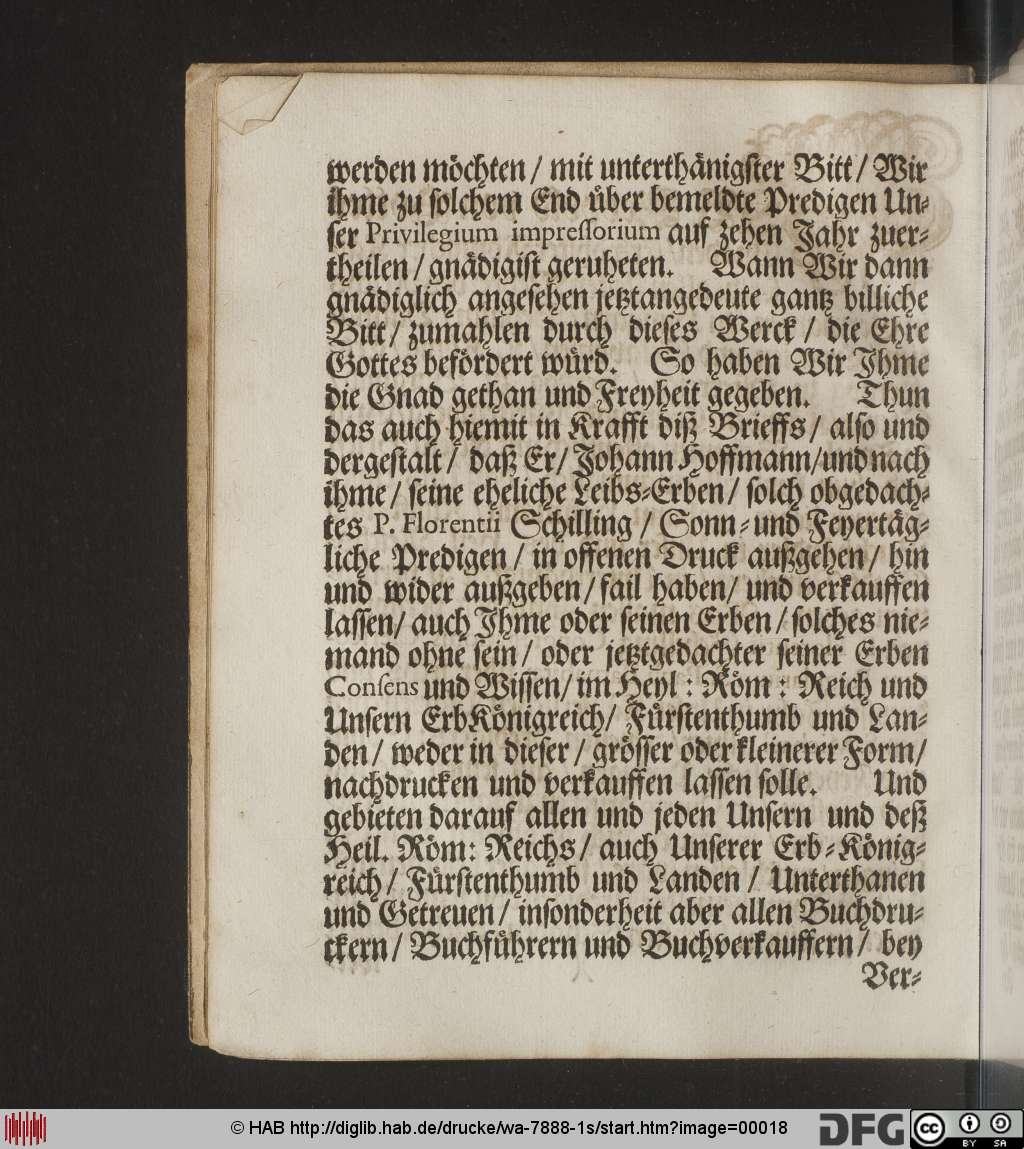 werden möchten / mit unterthänigster Bitt / Wir
ihme zu solchem End über bemeldte Predigen Un-
ser Privilegium impressorium auf zehen Jahr zuer-
theilen / gnädigist geruheten. Wann Wir dann
gnädiglich angesehen jetztangedeute gantz billiche
Bitt / zumahlen durch dieses Werck / die Ehre
Gottes befördert würd. So haben Wir Ihme
die Gnad gethan und Freyheit gegeben. Thun
das auch hiemit in Krafft diß Brieffs / also und
dergestalt / daß Er / Johann Hoffmann / und nach
ihme / seine eheliche Leibs-Erben / solch obgedach-
tes P. Florentii Schilling / Sonn- und Feyertäg-
liche Predigen / in offenen Druck außgehen / hin
und wider außgeben / fail haben / und verkauffen
lassen / auch Ihme oder seinen Erben / solches nie-
mand ohne sein / oder jetztgedachter seiner Erben
Consens und Wissen / im Heyl : Röm : Reich und
Unsern ErbKönigreich / Fürstenthumb und Lan-
den / weder in dieser / grösser oder kleinerer Form /
nachdrucken und verkauffen lassen solle. Und
gebieten darauf allen und jeden Unsern und deß
Heil. Röm: Reichs / auch Unserer Erb-König-
reich / Fürstenthumb und Landen / Unterthanen
und Getreuen / insonderheit aber allen Buchdru-
ckern / Buchführern und Buchverkauffern / bey
Ver-
© HAB http://diglib.hab.de/drucke/wa-7888-1s/start.htm?image=00018
DFG
cc BY SA